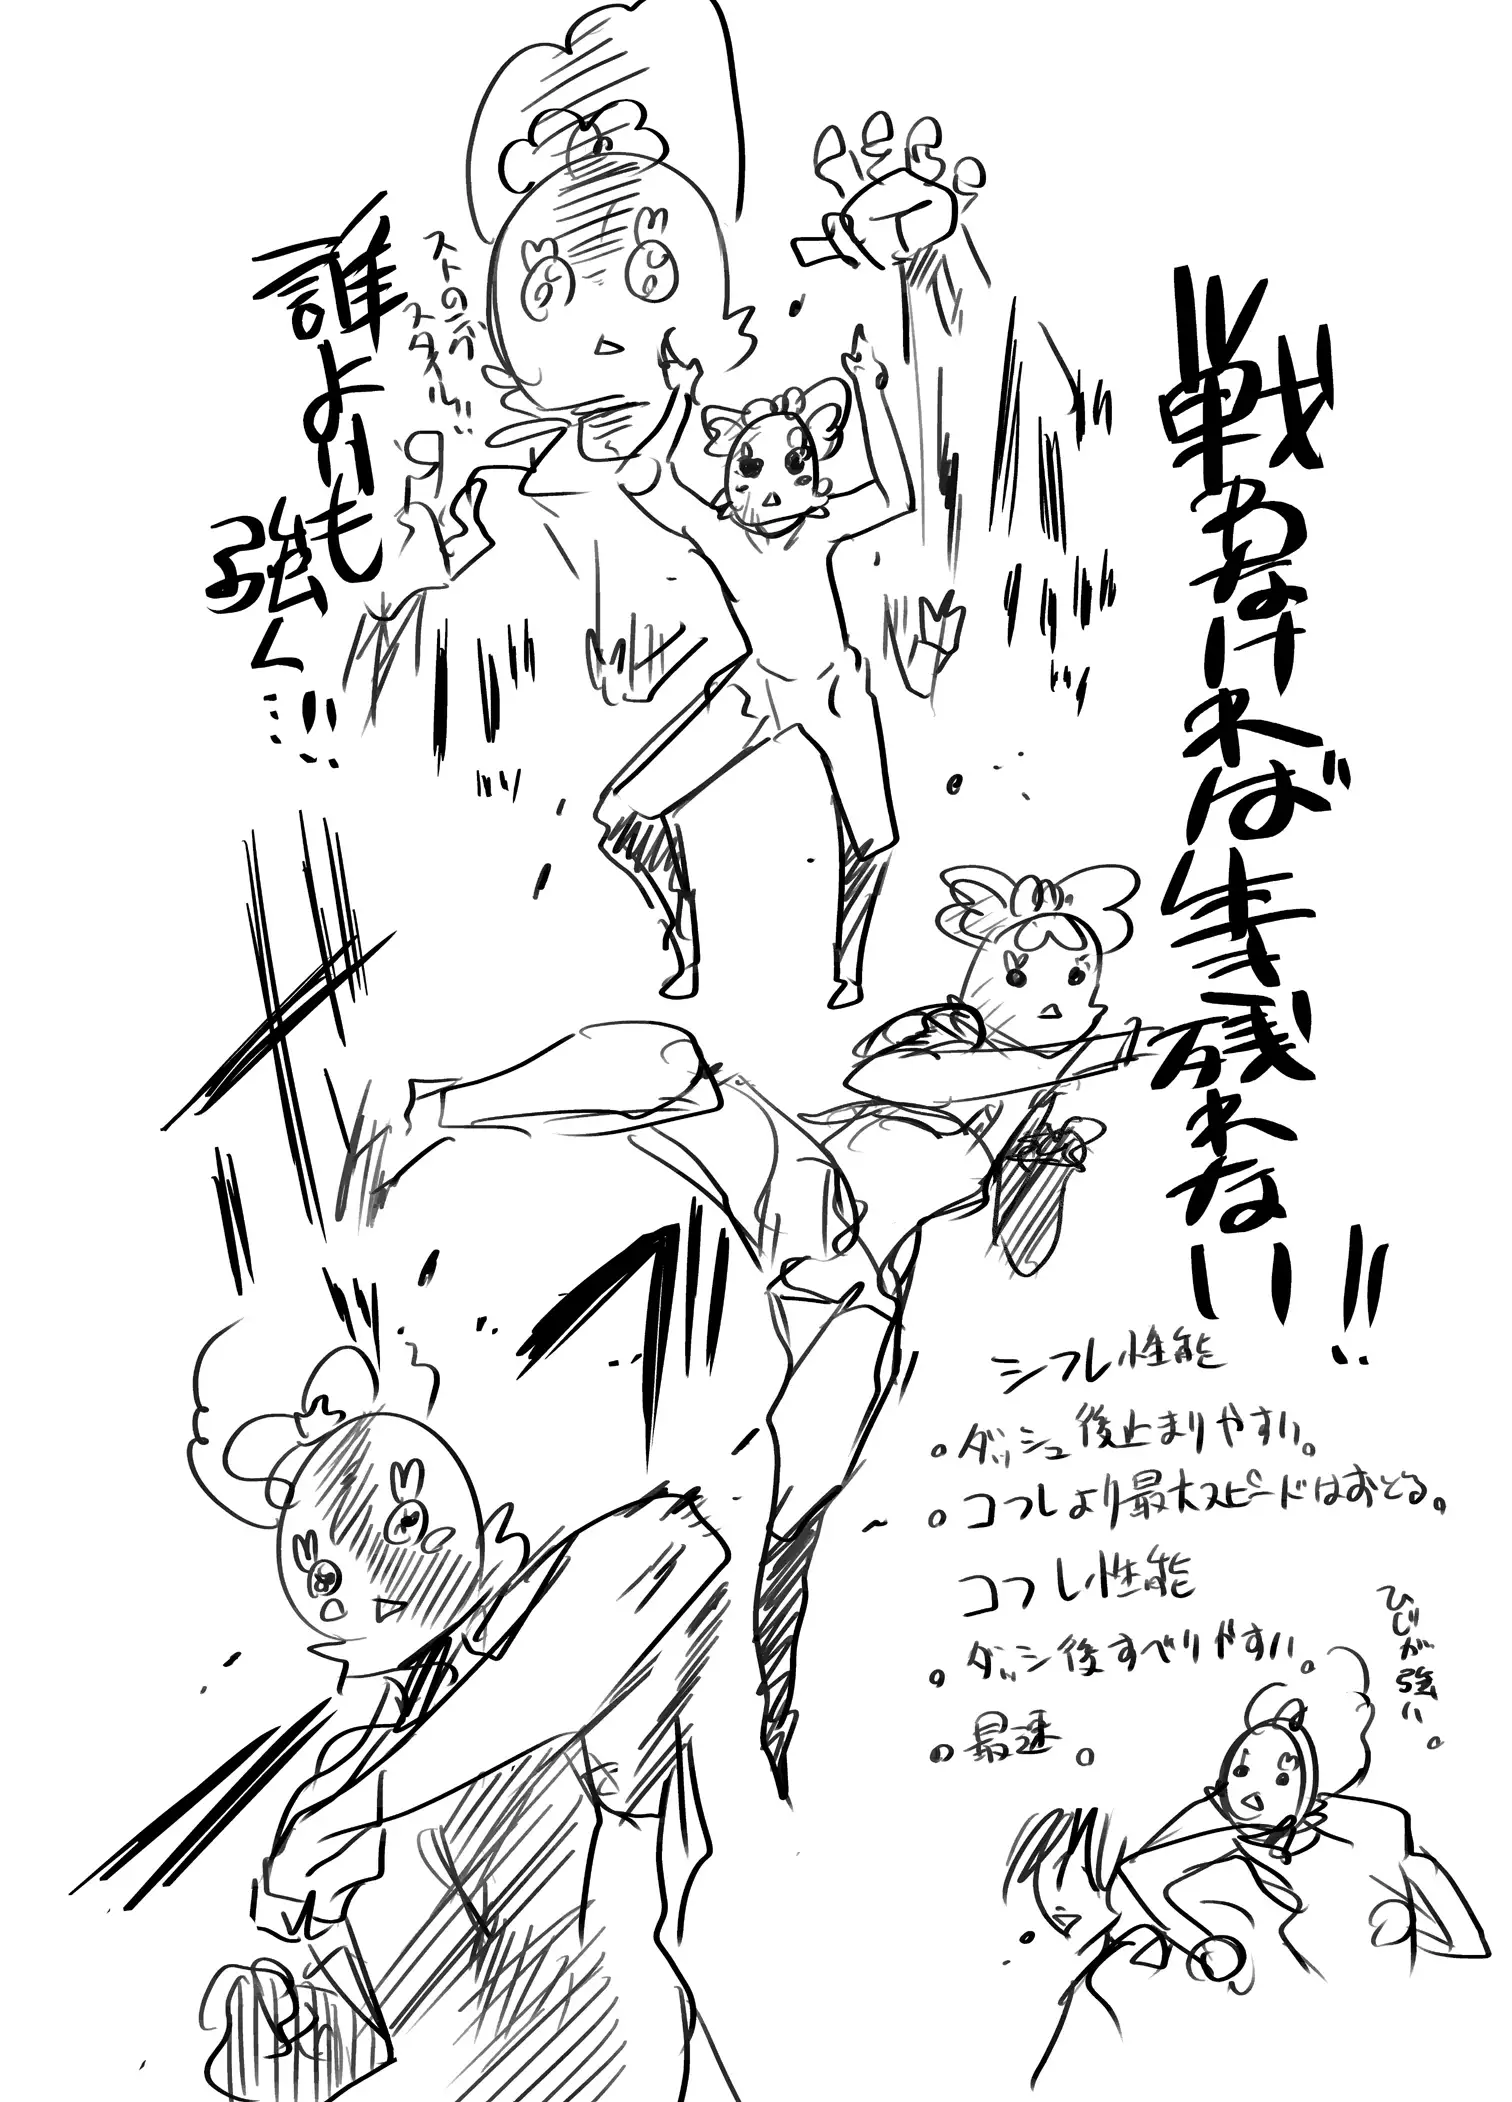 戦わなければ生き残れない!!
誰よりも
強く…!!
シフレ性能
。ダッシュ後止まりやすい。
。コフレより最大スピードはおとる。
コフレ性能
。ダッシ後すべりやすい。
。最速。
ひじが強い。